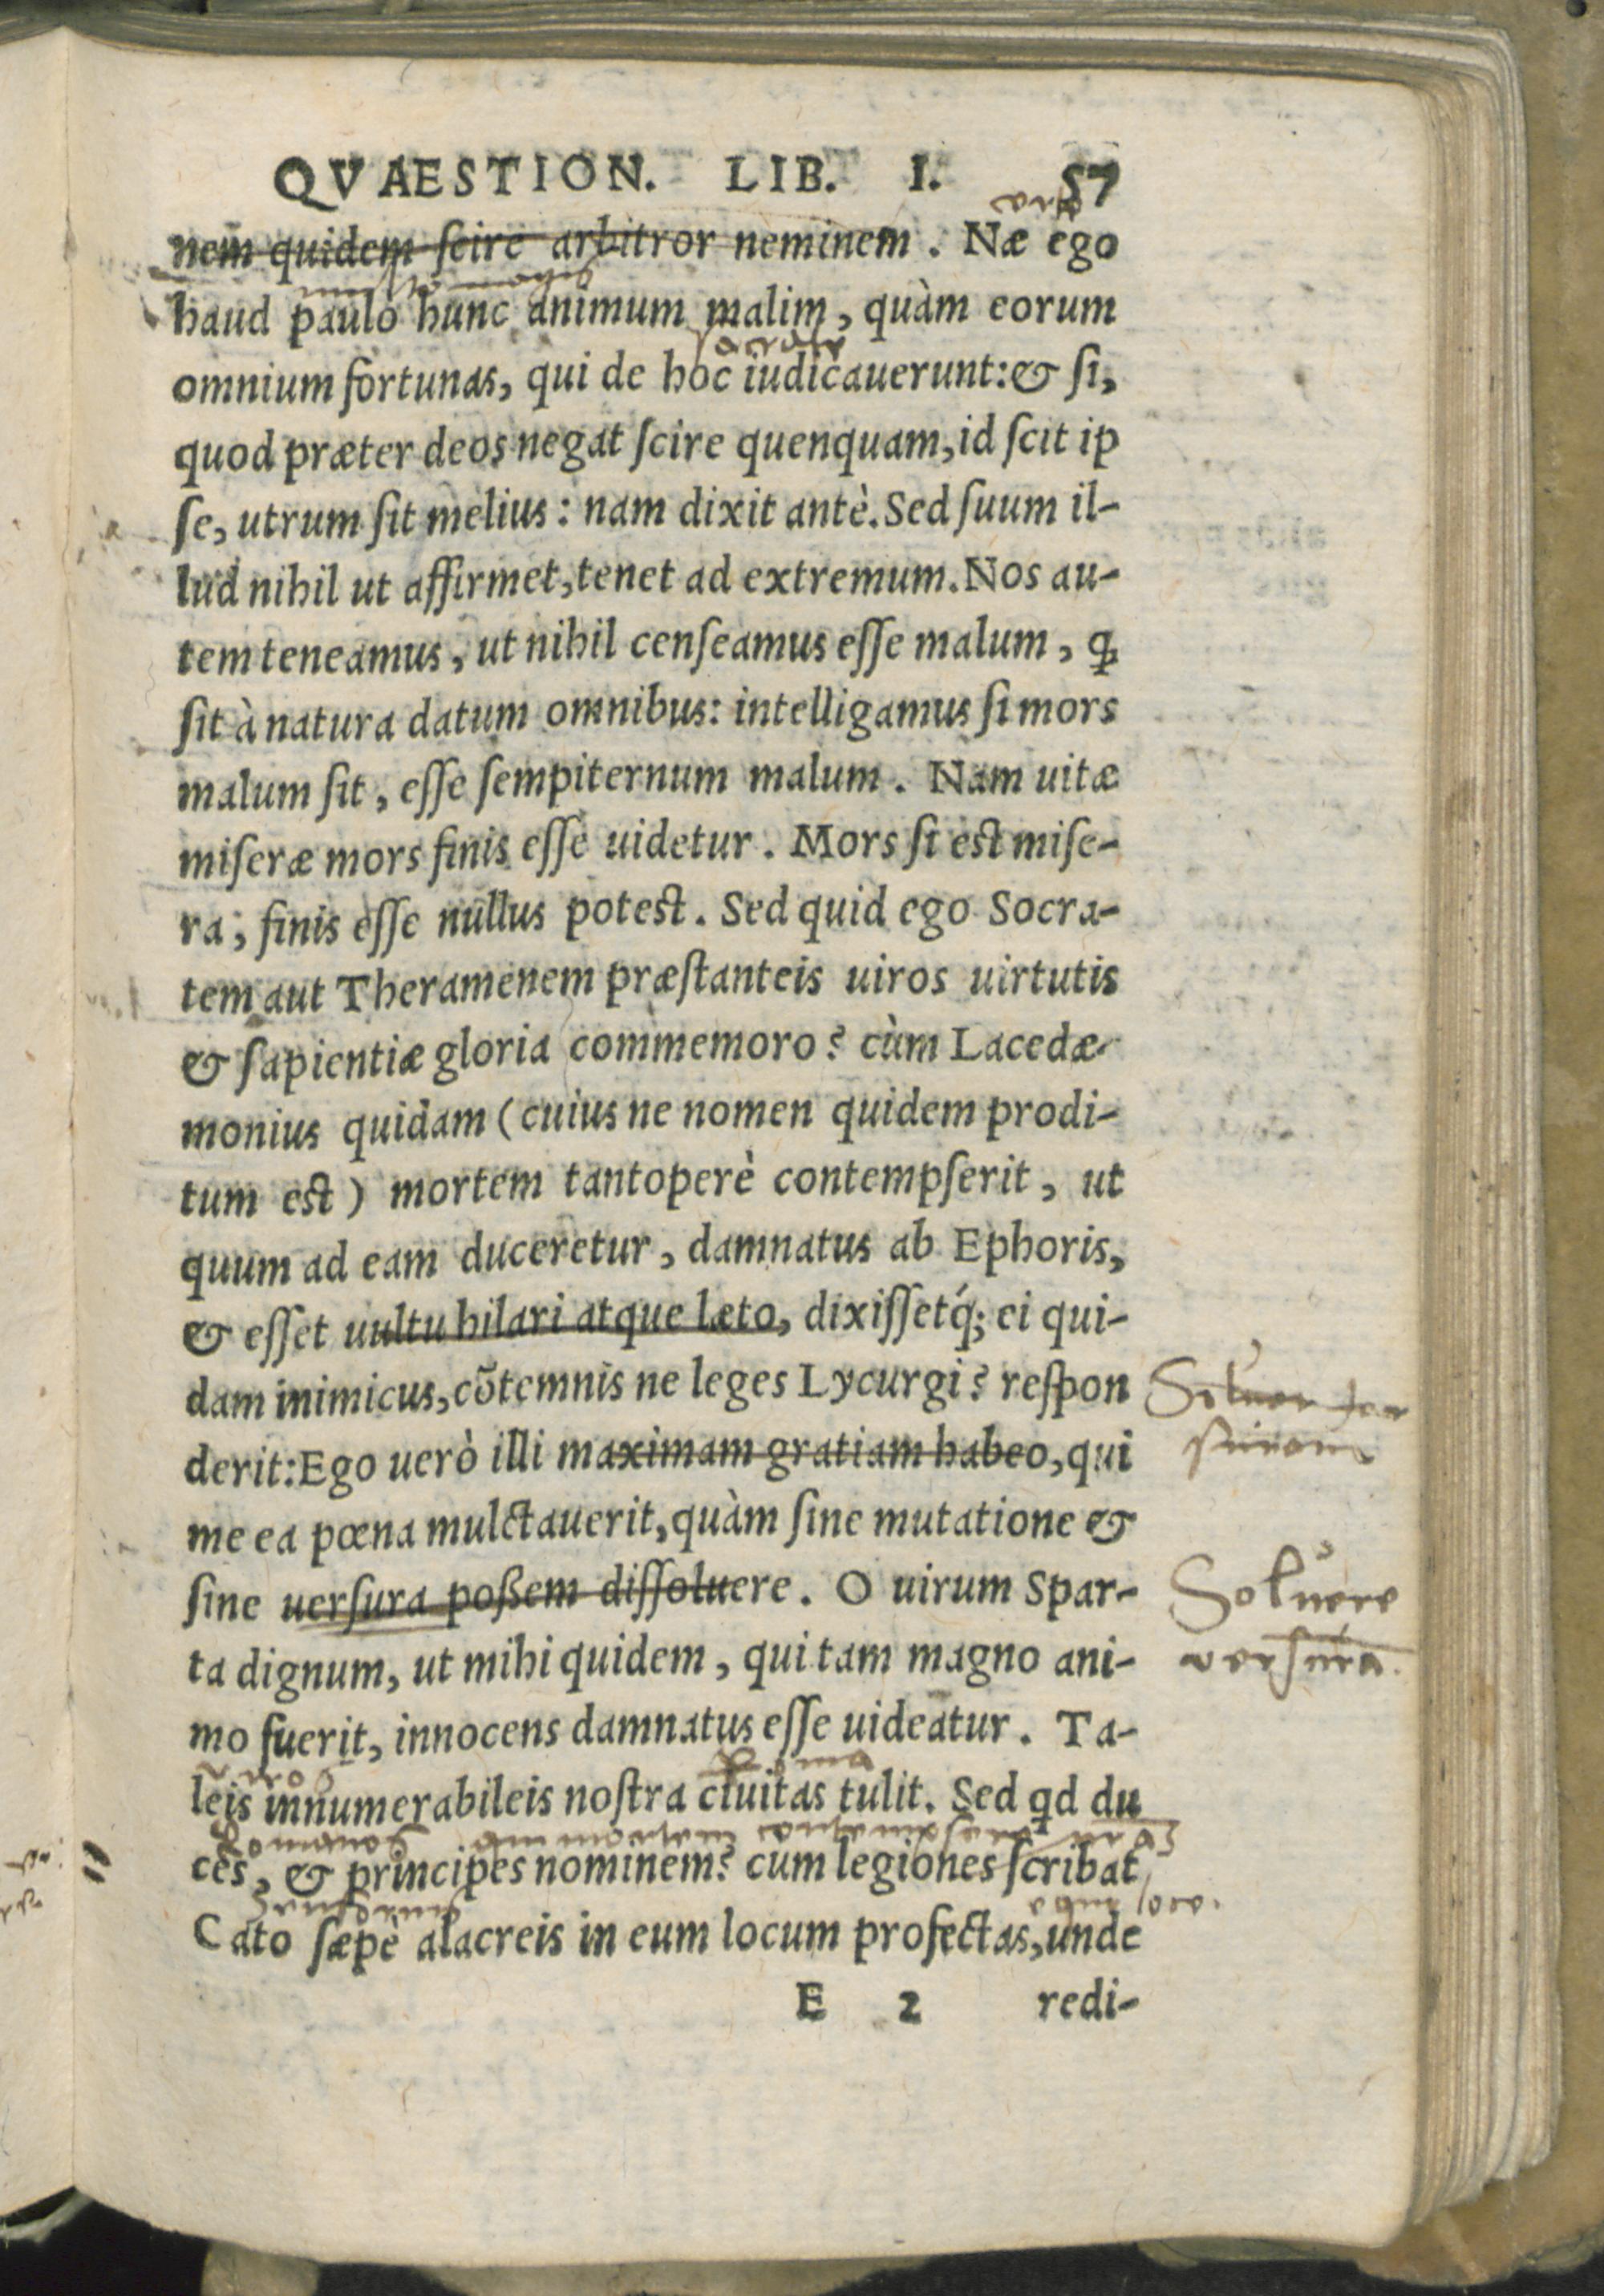 QVAESTION. LIB. I. 57
nem quidem ſcire arbitror neminem. Næ ego
haud paulo hunc animum malim, quàm eorum
omnium fortunas, qui de hoc iudicauerunt: & ſi,
quod præter deos negat ſcire quenquam, id ſcit ip
ſe, utrum ſit melius: nam dixit antè. Sed ſuum il-
lud nihil ut affirmet, tenet ad extremum. Nos au-
tem teneamus, ut nihil cenſeamus eſſe malum, ꝙ
ſit à natura datum omnibus: intelligamus ſi mors
malum ſit, eſſe ſempiternum malum. Nam uitæ
miſeræ mors finis eſſe uidetur. Mors ſi est miſe-
ra, finis eſſe nullus potest. Sed quid ego Socra-
tem aut Theramenem præſtanteis uiros uirtutis
& ſapientiæ gloria commemoro? cùm Lacedæ-
monius quidam (cuius ne nomen quidem prodi-
tum est) mortem tantoperè contempſerit, ut
quum ad eam duceretur, damnatus ab Ephoris,
& eſſet uultu hilari atque læto, dixiſſetq́; ei qui-
dam inimicus, cõtemnis ne leges Lycurgi? reſpon
derit: Ego uerò illi maximam gratiam habeo, qui
me ea pœna mulctauerit, quàm ſine mutatione &
ſine uerſura poßem diſſoluere. O uirum Spar-
ta dignum, ut mihi quidem, qui tam magno ani-
mo fuerit, innocens damnatus eſſe uideatur. Ta-
leis innumerabileis noſtra ciuitas tulit. Sed qd du
ces, & principes nominem? cum legiones ſcribat
Cato ſæpè alacreis in eum locum profectas, unde
E 2 redi-
Soluere
verſura.